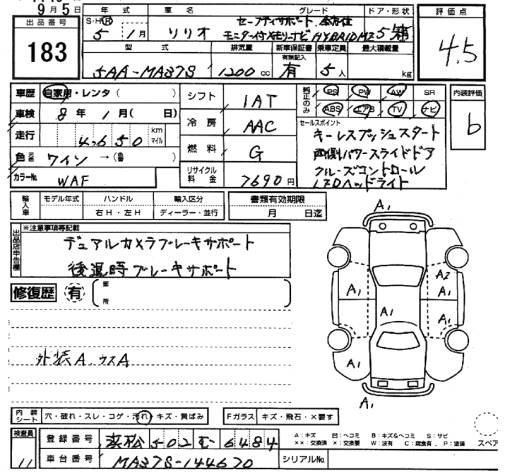 9月5日
出品番号 183
年式 車名 グレード ドア・形状 評価点
S・H・R 5年1月 ソリオ セーフティサポート 全方位
モニター付メモリーナビ HYBRID MZ 5箱
4.5
型式 排気量 新車保証書 乗車定員 最大積載量
有無記入
5AA-MA37S 1200cc 有 5人 kg
車歴 自家用・レンタ( )
車検 8年1月(日)
走行 4,650 km マイル
色 ワイン →(番)
カラーNo. WAF
シフト IAT
冷房 AAC
燃料 G
リサイクル料金 7690円
純正のみ PS PW AW SR
ABS エアB TV ナビ
内装評価 b
セールスポイント
キーレスプッシュスタート
両側パワースライドドア
クルーズコントロール
LEDヘッドライト
輸入車 モデル年式 ハンドル 輸入区分 書類有効期限
右H・左H ディーラー・並行 月 日迄
出品店申告欄 ※注意事項等記載
デュアルカメラブレーキサポート
後退時ブレーキサポート
修復歴 有 箇所
外装A、ウスA
A1
A1 A2
A1 A1
A1 A1
A1
内装シート 穴・破れ・スレ・コゲ・汚れ・キズ・黄ばみ
Fガラス キズ・飛石・×要す
検査員 11
登録番号 浜松502む6484
車台番号 MA37S-144670 シリアルNo.
A:キズ U:ヘコミ B:キズ&ヘコミ S:サビ
××:交換済 ×:交換要 W:波有 C:腐食有 P:塗装
スペア